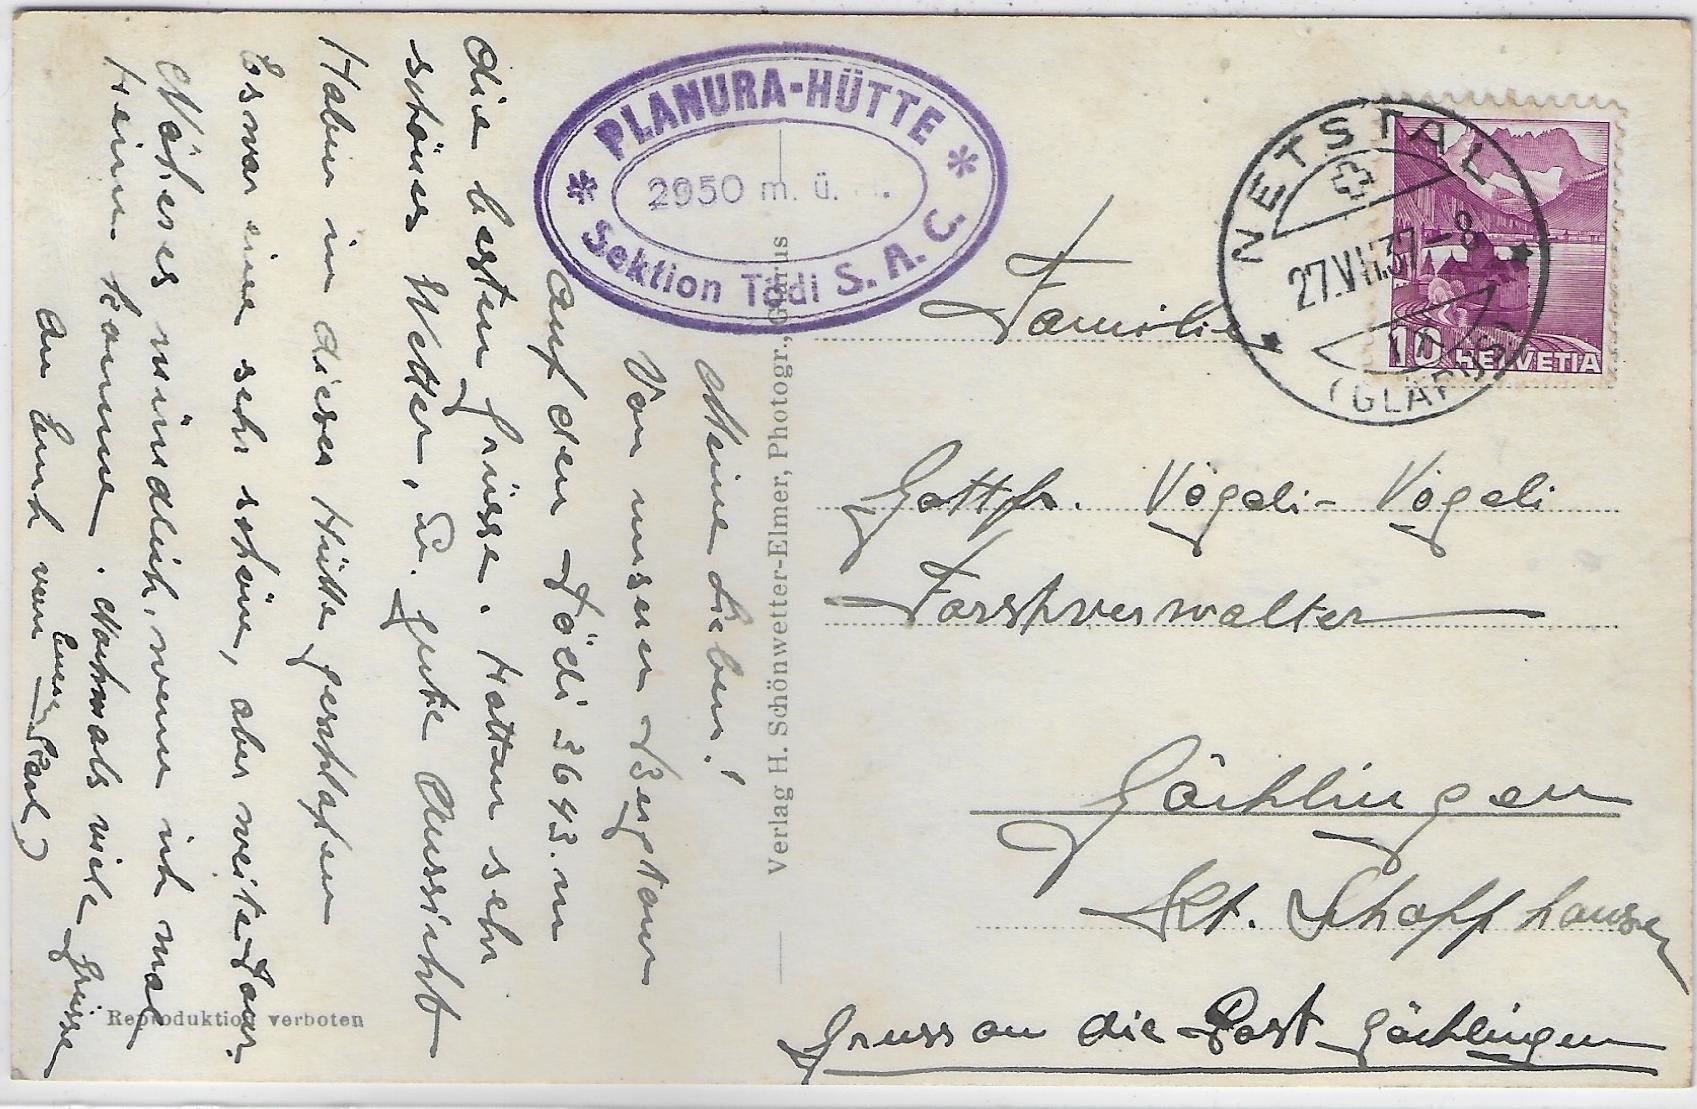 PLANURA-HÜTTE
2950 m. ü.
Sektion Tödi S. A. C.
NETSTAL
27.VII.37-8
(GLARUS)
10 HELVETIA
Meine Lieben!
Von unserer Bergtour
auf den Tödi 3643.m
die besten Grüsse. Hatten sehr
schönes Wetter, u. gute Aussicht
Haben in dieser Hütte geschlafen
Es war eine sehr schöne, aber weite Tour.
Näheres mündlich, wenn ich mal
Heim komme. Nochmals viele Grüsse
an Euch von
Euer Karl
Verlag H. Schönwetter-Elmer, Photogr., Glarus
Reproduktion verboten
Familie
Gottfr. Vögeli-Vögeli
Forstverwalter
Gächlingen
Kt. Schaffhausen
Gruss an die Post Gächlingen